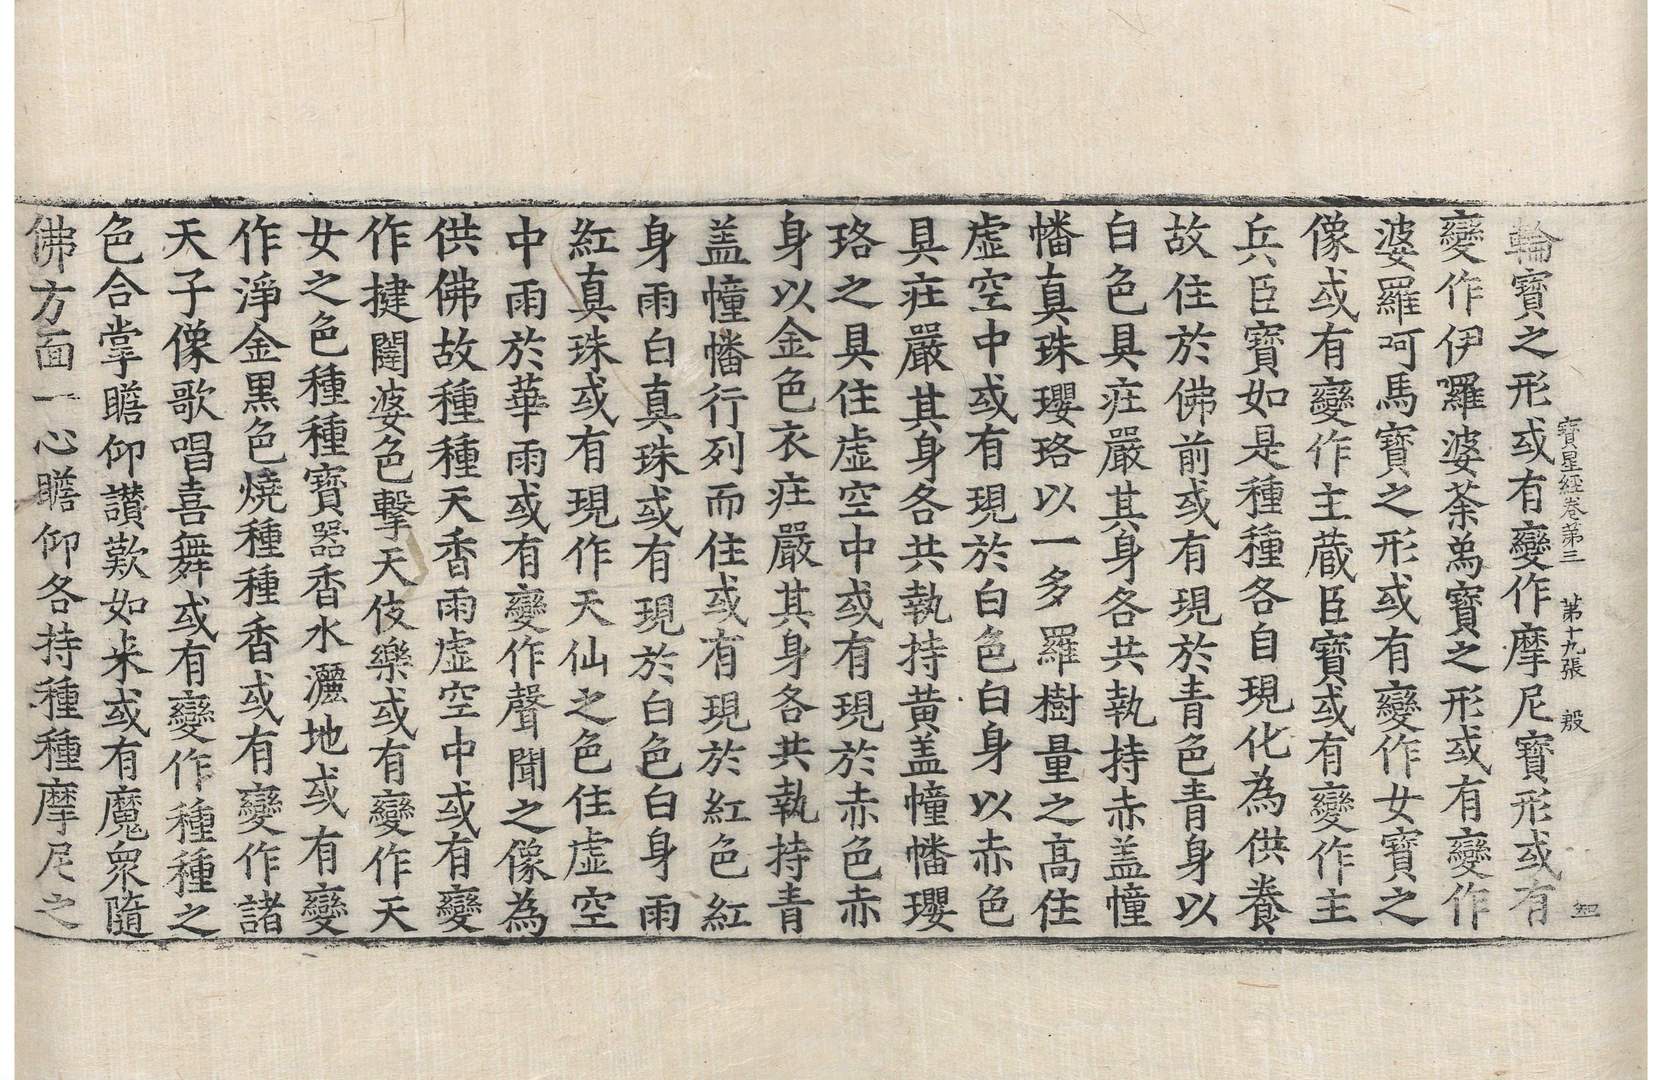 寶星經卷第三 第十九張 殷
輪寶之形或有變作摩尼寶形或有
變作伊囉婆荼為寶之形或有變作
婆羅呵馬寶之形或有變作女寶之
像或有變作主蔵臣寶或有變作主
兵臣寶如是種種各自現化為供養
故住於佛前或有現於青色青身以
白色具莊嚴其身各共執持赤盖幢
幡真珠瓔珞以一多羅樹量之髙住
虛空中或有現於白色白身以赤色
具莊嚴其身各共執持黄盖幢幡瓔
珞之具住虛空中或有現於赤色赤
身以金色衣莊嚴其身各共執持青
盖幢幡行列而住或有現於紅色紅
身雨白真珠或有現於白色白身雨
紅真珠或有現作天仙之色住虛空
中雨於華雨或有變作聲聞之像為
供佛故種種天香雨虛空中或有變
作揵闥婆色擊天伎樂或有變作天
女之色種種寶器香水灑地或有變
作淨金黒色燒種種香或有變作諸
天子像歌唱喜舞或有變作種種之
色合掌瞻仰讃歎如来或有魔衆隨
佛方面一心瞻仰各持種種摩尼之